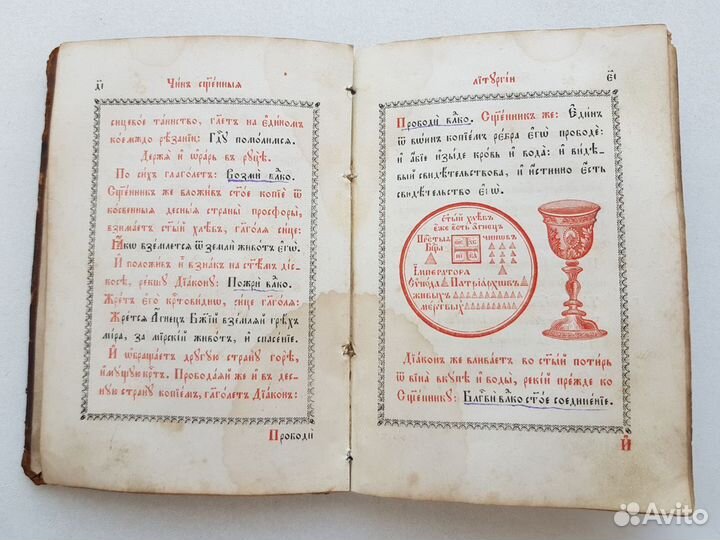 д҃і
Чи́нъ сщ҃е́нныѧ
сицевое таинство, гл҃етъ на єдиномъ
коемждо рѣзанїи: Гдⷭ҇ꙋ помолимсѧ.
Держа и ѡрарь въ рꙋцѣ.
По сихъ глаголетъ: Возми влⷣко.
Сщ҃енникъ же вложивъ ст҃ое копїе ѿ
косвенныѧ десныѧ страны просфоры,
взимаетъ ст҃ый хлѣбъ, глаголѧ сице:
Ꙗкѡ вземлетсѧ ѿ земли животъ єгѡ̀.
И положивъ и взнакъ на ст҃ѣмъ дїс-
косѣ, рекшꙋ Дїаконꙋ: Пожри влⷣко.
Жретъ єго крⷭ҇товиднѡ, сице глаголѧ:
Жретсѧ Агнецъ Бж҃їй вземлѧй грѣхъ
мїра, за мїрскїй животъ, и спасенїе.
И ѡбращаетъ дрꙋгꙋю странꙋ горѣ,
имꙋщꙋю крⷭ҇тъ. Прободаѧй же и въ дес-
нꙋю странꙋ копїемъ, глаголетъ Дїаконъ:
Прободи
лїтꙋргїи
є҃і
Прободи влⷣко. Сщ҃енникъ же: Єдинъ
ѿ воинъ копїемъ ребра єгѡ̀ прободе:
и абїе изыде кровь и вода: и видѣ-
вый свидѣтельствова, и истинно єсть
свидѣтельство єгѡ̀.
ст҃ый хлѣбъ
єже єсть агнецъ
Прест҃ыѧ
Бц҃ы
іс хс
ни ка
чиновъ
Імператора
Сѵнода Патрїарховъ
живыхъ
мертвыхъ
Дїаконъ же вливаетъ во ст҃ый потирь
ѿ вина вкꙋпѣ и воды, рекїй прежде ко
Сщ҃енникꙋ: Блгⷭ҇ви влⷣко ст҃ое соединенїе.
И
Avito